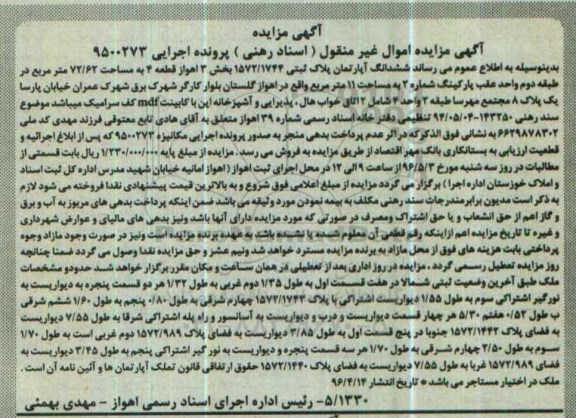 آگهی مزایده
آگهی مزایده اموال غیر منقول ( اسناد رهنی ) پرونده اجرایی ۹۵۰۰۲۷۳
بدینوسیله به اطلاع عموم می رساند ششدانگ آپارتمان پلاک ثبتی ۱۵۷۲/۱۷۴۴ بخش ۳ اهواز قطعه ۴ به مساحت ۷۲/۶۲ متر مربع در
طبقه دوم واحد عقب پارکینگ شماره ۲ به مساحت ۱۱ متر مربع واقع در اهواز گلستان بلوار کارگر شهرک برق شهرک عمران خیابان پارسا
یک پلاک ۸ مجتمع مهرسا طبقه ۲ واحد ۴ شامل ۲ اتاق خواب هال ، پذیرایی و آشپزخانه اپن با کابینت mdf کف سرامیک میباشد موضوع
سند رهنی ۱۴۳۲۵۰-۹۴/۰۵/۰۴ تنظیمی دفتر خانه اسناد رسمی شماره ۳۹ اهواز متعلق به آقای هادی تابع معتوقی فرزند مهدی کد ملی
۶۶۲۹۸۷۸۳۰۲ به نشانی فوق الذکر که در اثر عدم پرداخت بدهی منجر به صدور پرونده اجرایی مکانیزه ۹۵۰۰۲۷۳ که پس از ابلاغ اجرائیه و
قطعیت ارزیابی به بستانکاری بانک مهر اقتصاد از طریق مزایده به فروش می رسد . مزایده از مبلغ پایه ۱/۲۳۰/۰۰۰/۰۰۰ ریال بابت قسمتی از
مطالبات در روز سه شنبه مورخ ۹۶/۵/۳ از ساعت ۹ الی ۱۲ در محل اجرای ثبت اهواز ( اهواز امانیه خیابان شهید مدرس اداره کل ثبت اسناد
و املاک خوزستان اداره اجرا ) برگزار می گردد مزایده از مبلغ اعلامی فوق شروع و به بالاترین قیمت پیشنهادی نقدا فروخته می شود لازم
به ذکر است مدیون برابر مندرجات سند رهنی مکلف به بیمه نمودن مورد وثیقه می باشد ضمن اینکه پرداخت بدهی های مربوز به آب و برق
و گاز اعم از حق انشعاب و یا حق اشتراک و مصرف در صورتی که مورد مزایده دارای آنها باشد و نیز بدهی های مالیاتی و عوارض شهرداری
و غیره تا تاریخ مزایده اعم از اینکه رقم قطعی آن معلوم شده یا نشده باشد به عهده برنده مزایده است و نیز در صورت وجود مازاد وجوه
پرداختی بابت هزینه های فوق از محل مازاد به برنده مزایده مسترد خواهد شد و نیم عشر و حق مزایده نقدا وصول می گردد ضمنا چنانچه
روز مزایده تعطیل رسمی گردد ، مزایده در روز اداری بعد از تعطیلی در همان ساعت و مکان مقرر برگزار خواهد شد حدود و مشخصات
ملک طبق آخرین وضعیت ثبتی شمالا در هفت قسمت اول به طول ۱/۳۵ دوم غربی به طول ۱/۳۲ هر دو قسمت پنجره به دیواریست به
نورگیر اشتراکی سوم به طول ۱/۵۵ دیواریست اشتراکی با پلاک ۱۵۷۲/۱۷۴۳ چهارم شرقی به طول ۰/۸۰ پنجم به طول ۱/۶۰ ششم شرقی
ب طول ۰/۵۲ هفتم ۵/۳۰ هر چهار قسمت دیواریست و درب و دیواریست به آسانسور و راه پله اشتراکی شرقا به طول ۷/۵۵ دیواریست
به فضای پلاک ۱۵۷۲/۱۴۴۲ جنوبا در پنج قسمت اول به طول ۳/۸۵ دیواریست به فضای پلاک ۱۵۷۲/۹۸۹ دوم غربی است به طول ۱/۷۰
سوم به طول ۲/۵۰ چهارم شرقی به طول ۱/۷۰ هر سه قسمت پنجره و دیواریست به نور گیر اشتراکی پنجم به طول ۳/۴۵ دیواریست به
فضای ۱۵۷۲/۹۸۹ غربا به طول ۷/۵۵ دیواریست به فضای پلاک ۱۵۷۲/۱۴۴۰ حقوق ارتفاقی قانون تملک آپارتمان ها و آئین نامه آن است .
ملک در اختیار مستاجر می باشد * تاریخ انتشار ۹۶/۴/۱۴
۵/۱۳۳۰- رئیس اداره اجرای اسناد رسمی اهواز - مهدی بهمئی